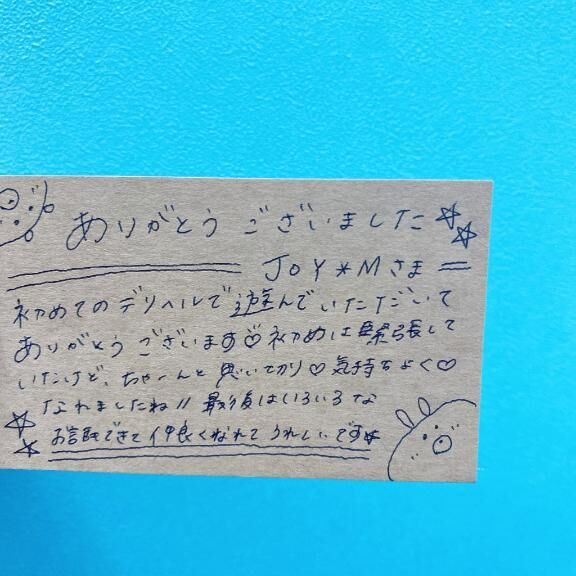 ありがとうございました
JOY*Mさま
初めてのデリヘルで遊んでいただいて
ありがとうございます♡初めは緊張して
いたけど、ちゃーんと 気持ちよく♡
なれましたね!! 最後はいろいろな
お話もできて仲良くなれてうれしいです